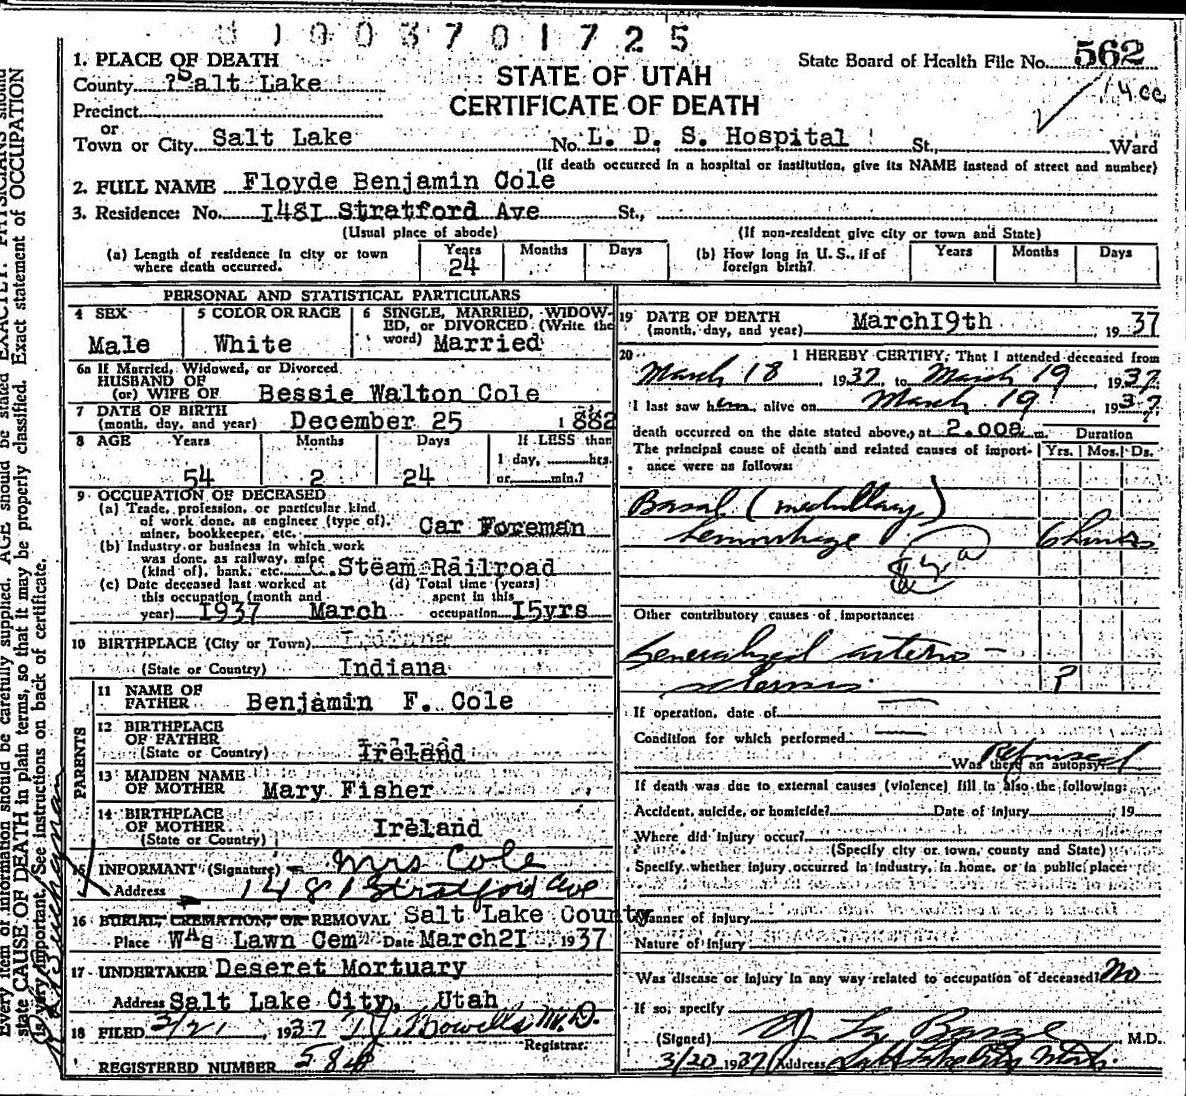 1003701725
1. PLACE OF DEATH
STATE OF UTAH
CERTIFICATE OF DEATH
State Board of Health File No. 562
County ?Salt Lake
4cc
Precinct
or
Town or City Salt Lake No. L. D. S. Hospital St., Ward
(If death occurred in a hospital or institution, give its NAME instead of street and number)
2. FULL NAME Floyde Benjamin Cole
3. Residence: No. 1481 Stratford Ave St.,
(Usual place of abode) (If non-resident give city or town and State)
(a) Length of residence in city or town where death occurred. Years 24 Months Days
(b) How long in U. S., if of foreign birth? Years Months Days
PERSONAL AND STATISTICAL PARTICULARS
4 SEX Male
5 COLOR OR RACE White
6 SINGLE, MARRIED, WIDOWED, or DIVORCED (Write the word) Married
6a If Married, Widowed, or Divorced
HUSBAND OF
(or) WIFE OF Bessie Walton Cole
7 DATE OF BIRTH
(month, day, and year) December 25 1882
8 AGE Years Months Days If LESS than
54 2 24 1 day, hrs.
or min.?
9 OCCUPATION OF DECEASED
(a) Trade, profession, or particular kind
of work done, as engineer (type of),
miner, bookkeeper, etc. Car Foreman
(b) Industry or business in which work
was done, as railway, mine
(kind of), bank, etc. Steam Railroad
(c) Date deceased last worked at
this occupation (month and
year) 1937 March
(d) Total time (years)
spent in this
occupation 15yrs
10 BIRTHPLACE (City or Town)
(State or Country) Indiana
PARENTS
11 NAME OF
FATHER Benjamin F. Cole
12 BIRTHPLACE
OF FATHER
(State or Country) Ireland
13 MAIDEN NAME
OF MOTHER Mary Fisher
14 BIRTHPLACE
OF MOTHER
(State or Country) Ireland
15 INFORMANT (Signature) Mrs Cole
Address 1481 Stratford Ave
16 BURIAL, CREMATION, OR REMOVAL Salt Lake County
Place WAs Lawn Cem Date March21 1937
17 UNDERTAKER Deseret Mortuary
Address Salt Lake City, Utah
18 FILED 3/21, 1937 M.D.
Registrar.
REGISTERED NUMBER 586
19 DATE OF DEATH
(month, day, and year) March19th 1937
20 I HEREBY CERTIFY, That I attended deceased from
March 18, 1937, to March 19, 1937.
I last saw him alive on March 19, 1937
death occurred on the date stated above, at 2.00a m. Duration
The principal cause of death and related causes of importance were as follows: Yrs. Mos. Ds.
Basal (medullary)
hemorrhage 6 hours
Other contributory causes of importance:
Generalized arterio-
sclerosis ?
If operation, date of —
Condition for which performed —
Was there an autopsy? Refused
If death was due to external causes (violence) fill in also the following:
Accident, suicide, or homicide? Date of injury , 19
Where did injury occur?
(Specify city or town, county and State)
Specify whether injury occurred in industry, in home, or in public place:
Manner of injury
Nature of injury
Was disease or injury in any way related to occupation of deceased? No
If so, specify
(Signed) M.D.
3/20 1937 (Address Salt Lake City Utah
Every item of information should be carefully supplied. AGE should be stated EXACTLY. PHYSICIANS should
state CAUSE OF DEATH in plain terms, so that it may be properly classified. Exact statement of OCCUPATION
is very important. (See instructions on back of certificate.